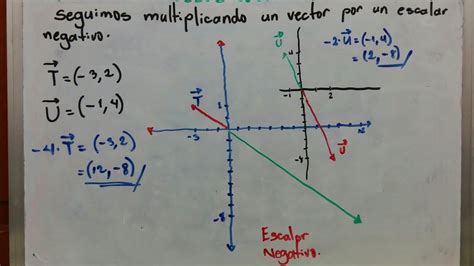 seguimos multiplicando un vector por un escalar
negativo.
T = (-3, 2)
U = (-1, 4)
-4·T = (-3, 2)
= (12, -8)
-2·U = (-1, 4)
= (2, -8)
T
U
U
-3
-8
-1
2
-8
Escalar
Negativo.